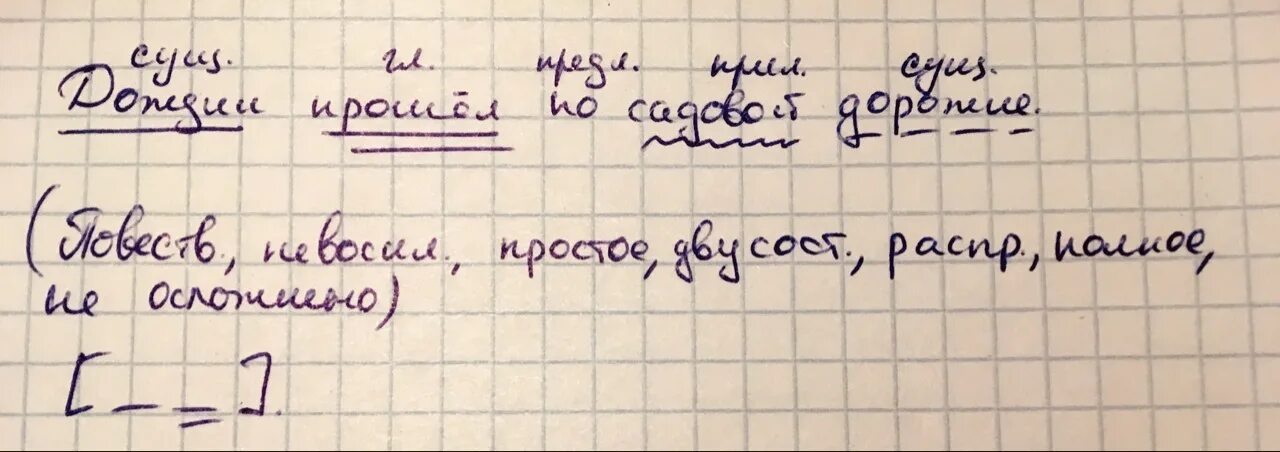 сущ. гл. предл. прил. сущ.
Дождик прошёл по садовой дорожке.
(Повеств., невоскл., простое, двусост., распр., полное,
не осложнено)
[ _ = ].